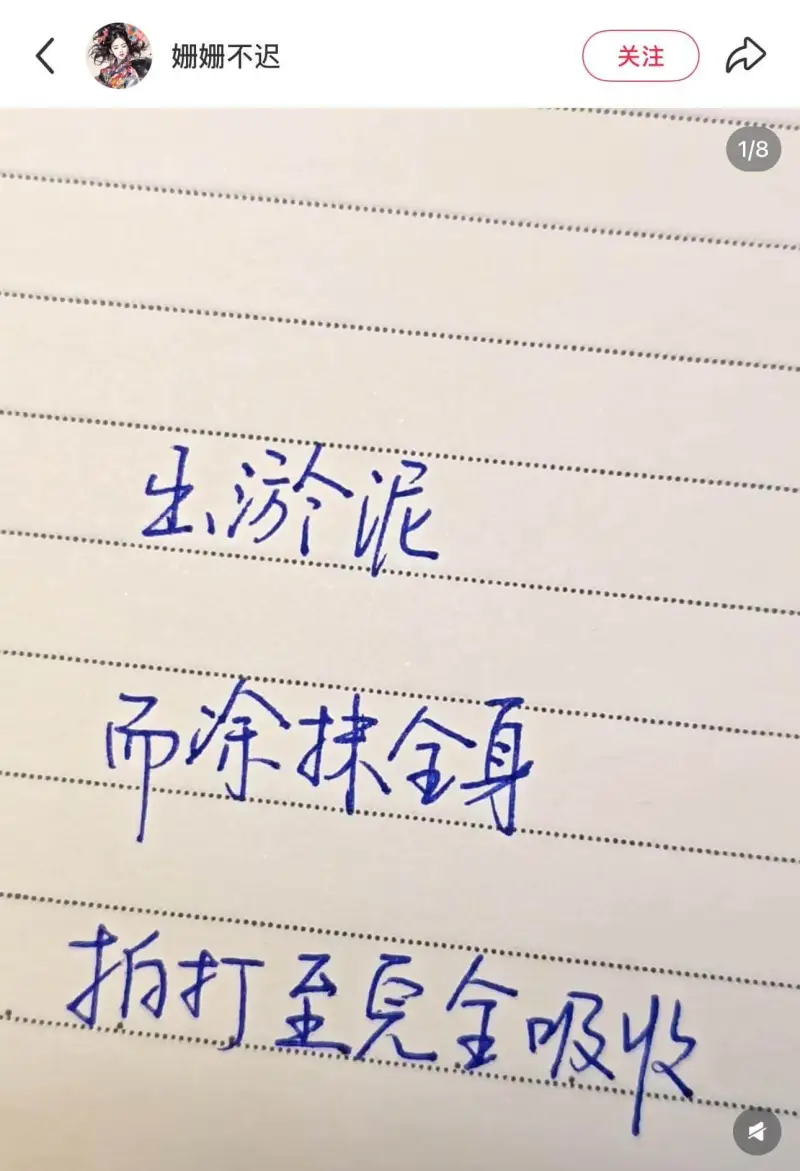 姗姗不迟
关注
1/8
出淤泥
而涂抹全身
拍打至完全吸收